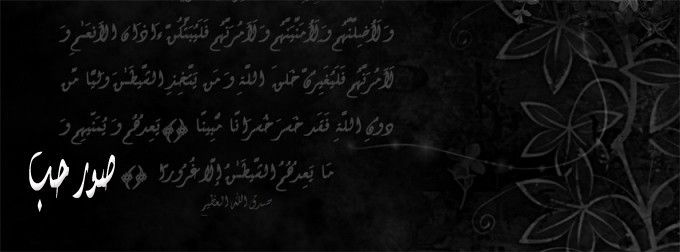 وَلَأُضِلَّنَّهُمْ وَلَأُمَنِّيَنَّهُمْ وَلَآمُرَنَّهُمْ فَلَيُبَتِّكُنَّ ءَاذَانَ الأَنْعَامِ وَ
لَآمُرَنَّهُمْ فَلَيُغَيِّرُنَّ خَلْقَ اللَّهِ وَمَن يَتَّخِذِ الشَّيْطَانَ وَلِيًّا مِّن
دُونِ اللَّهِ فَقَدْ خَسِرَ خُسْرَانًا مُّبِينًا يَعِدُهُمْ وَيُمَنِّيهِمْ وَ
مَا يَعِدُهُمُ الشَّيْطَانُ إِلَّا غُرُورًا
صدق الله العظيم
صور حب